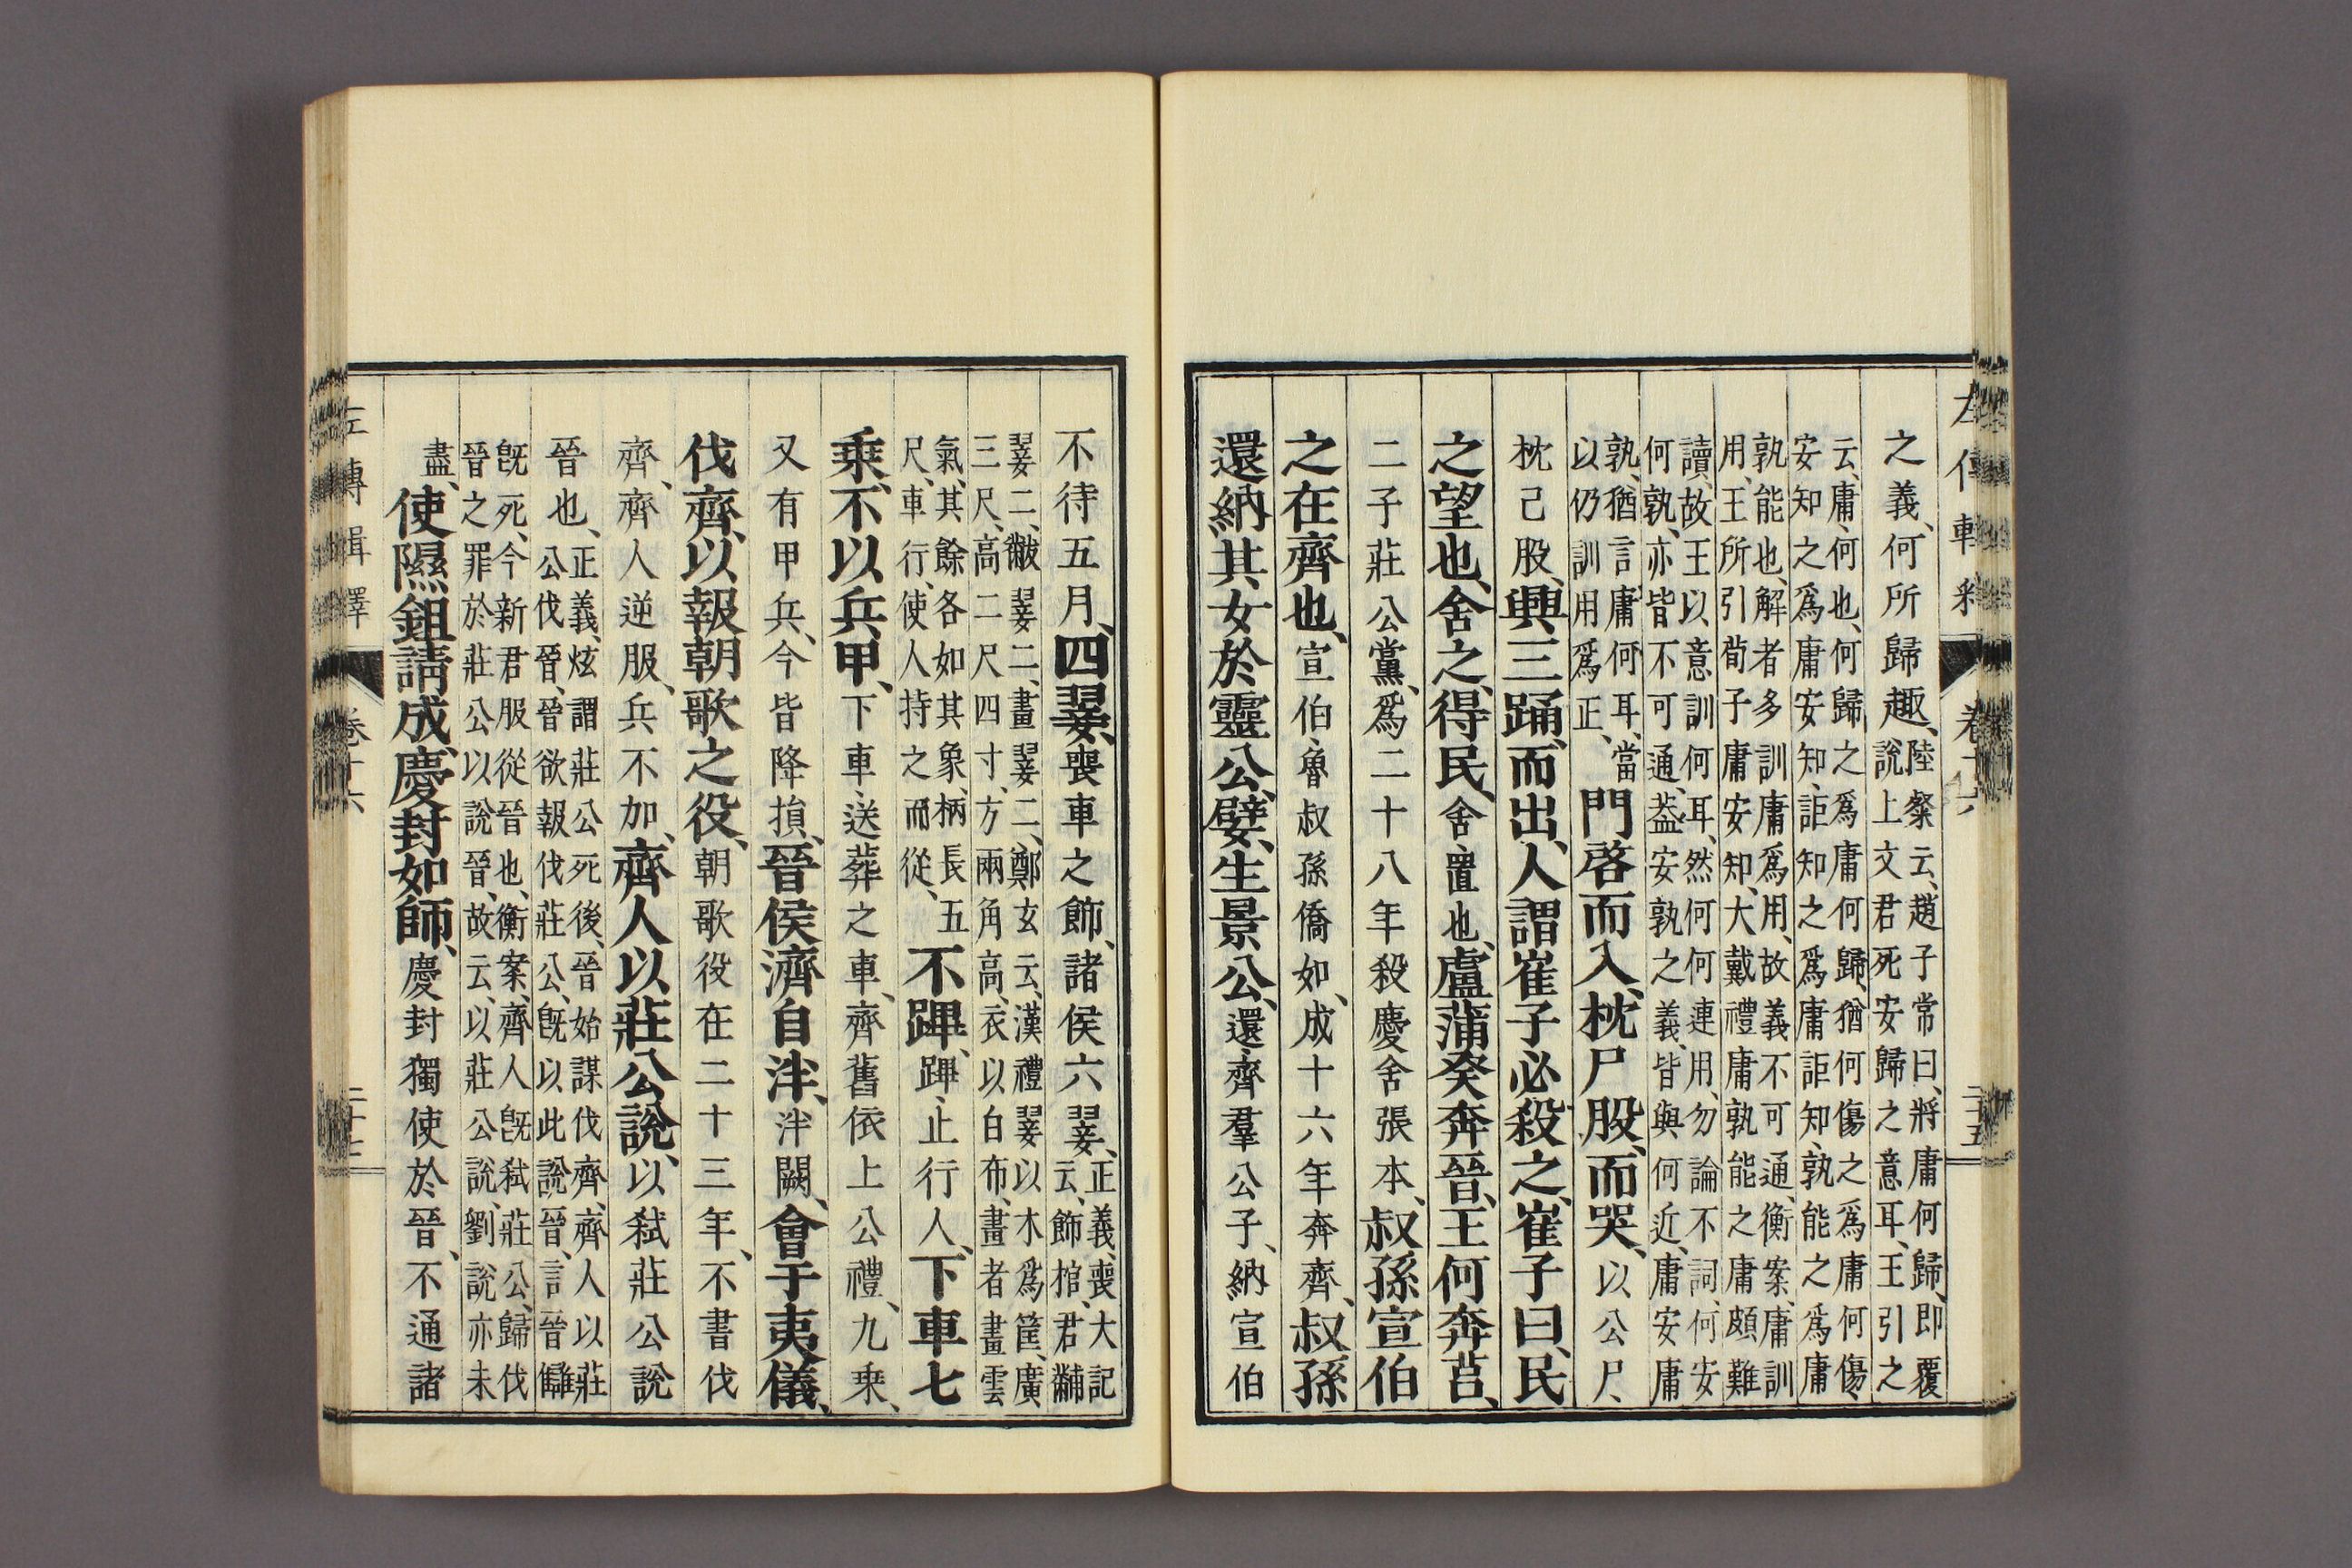 左傳輯釋 卷十六 二十五
之義、何所歸趣、陸粲云、趙子常曰、將庸何歸、即覆
說上文君死安歸之意耳、王引之
云、庸、何也、何歸之爲庸何歸、猶何傷之爲庸何傷、
安知之爲庸安知、詎知之爲庸詎知、孰能之爲庸
孰能也、解者多訓庸爲用、故義不可通、衡案、庸訓
用、王所引荀子庸安知、大戴禮庸孰能之庸頗難
讀、故王以意訓何耳、然何何連用、勿論不詞、何安
何孰、亦皆不可通、葢安孰之義、皆與何近、庸安庸
孰、猶言庸何耳、當
以仍訓用爲正、
門啓而入、枕尸股、而哭、以公尸、
枕己股、興、三踊、而出、人謂崔子必殺之、崔子曰、民
之望也、舍之、得民、舍、置也、盧蒲癸奔晉、王何奔莒、
二子莊公黨、爲二十八年殺慶舍張本、叔孫宣伯
之在齊也、宣伯、魯叔孫僑如、成十六年奔齊、叔孫
還納其女於靈公、嬖、生景公、還、齊羣公子、納宣伯
不待五月、四翣、喪車之飾、諸侯六翣、正義、喪大記
云、飾棺、君黼
翣二、黻翣二、畫翣二、鄭玄云、漢禮翣以木爲筐、廣
三尺、高二尺四寸、方兩角高、衣以白布、畫者畫雲
氣、其餘各如其象、柄長五
尺、車行、使人持之而從、
不蹕、蹕、止行人、下車七
乘、不以兵甲、下車、送葬之車、齊舊依上公禮、九乘、
又有甲兵、今皆降損、晉侯濟自泮、泮闕、會于夷儀、
伐齊、以報朝歌之役、朝歌役在二十三年、不書伐
齊、齊人逆服、兵不加、齊人以莊公說、以弒莊公說
晉也、正義、炫謂莊公死後、晉始謀伐齊、齊人以莊
公伐晉、晉欲報伐莊公、旣以此說晉、言晉讎
旣死、今新君服從晉也、衡案、齊人旣弒莊公、歸伐
晉之罪於莊公以說晉、故云、以莊公說、劉說亦未
盡、使隰鉏請成、慶封如師、慶封獨使於晉、不通諸
左傳輯釋 卷十六 二十七